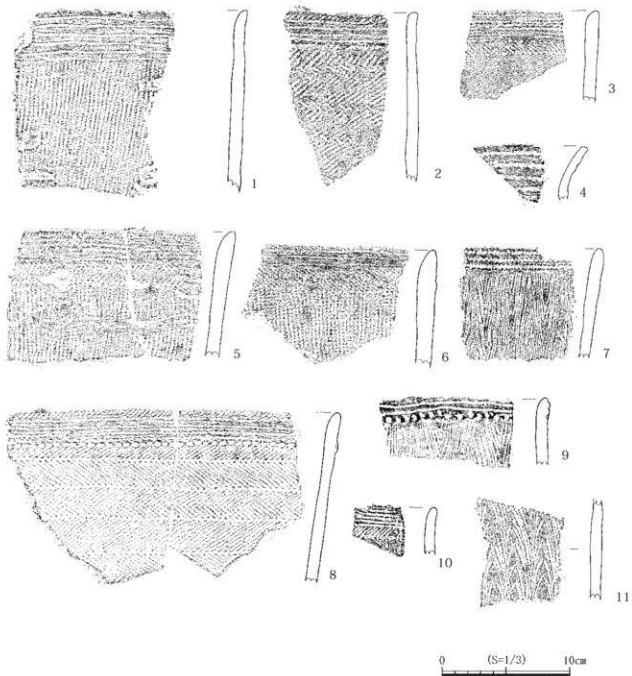 1
2
3
4
5
6
7
8
9
10
11
(S=1/3)
0
10cm